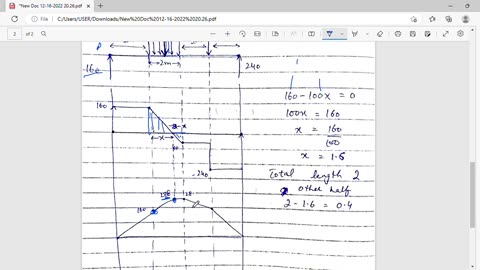 *New Doc 12-16-2022 20.26.pdf
C:/Users/USER/Downloads/New%20Doc%2012-16-2022%2020.26.pdf
2 of 2
Draw
2m
160
240
160
x
40
-240
160
288
160-100x = 0
100x = 160
x = 160
100
x = 1.6
Total length 2
other half
2-1.6 = 0.4